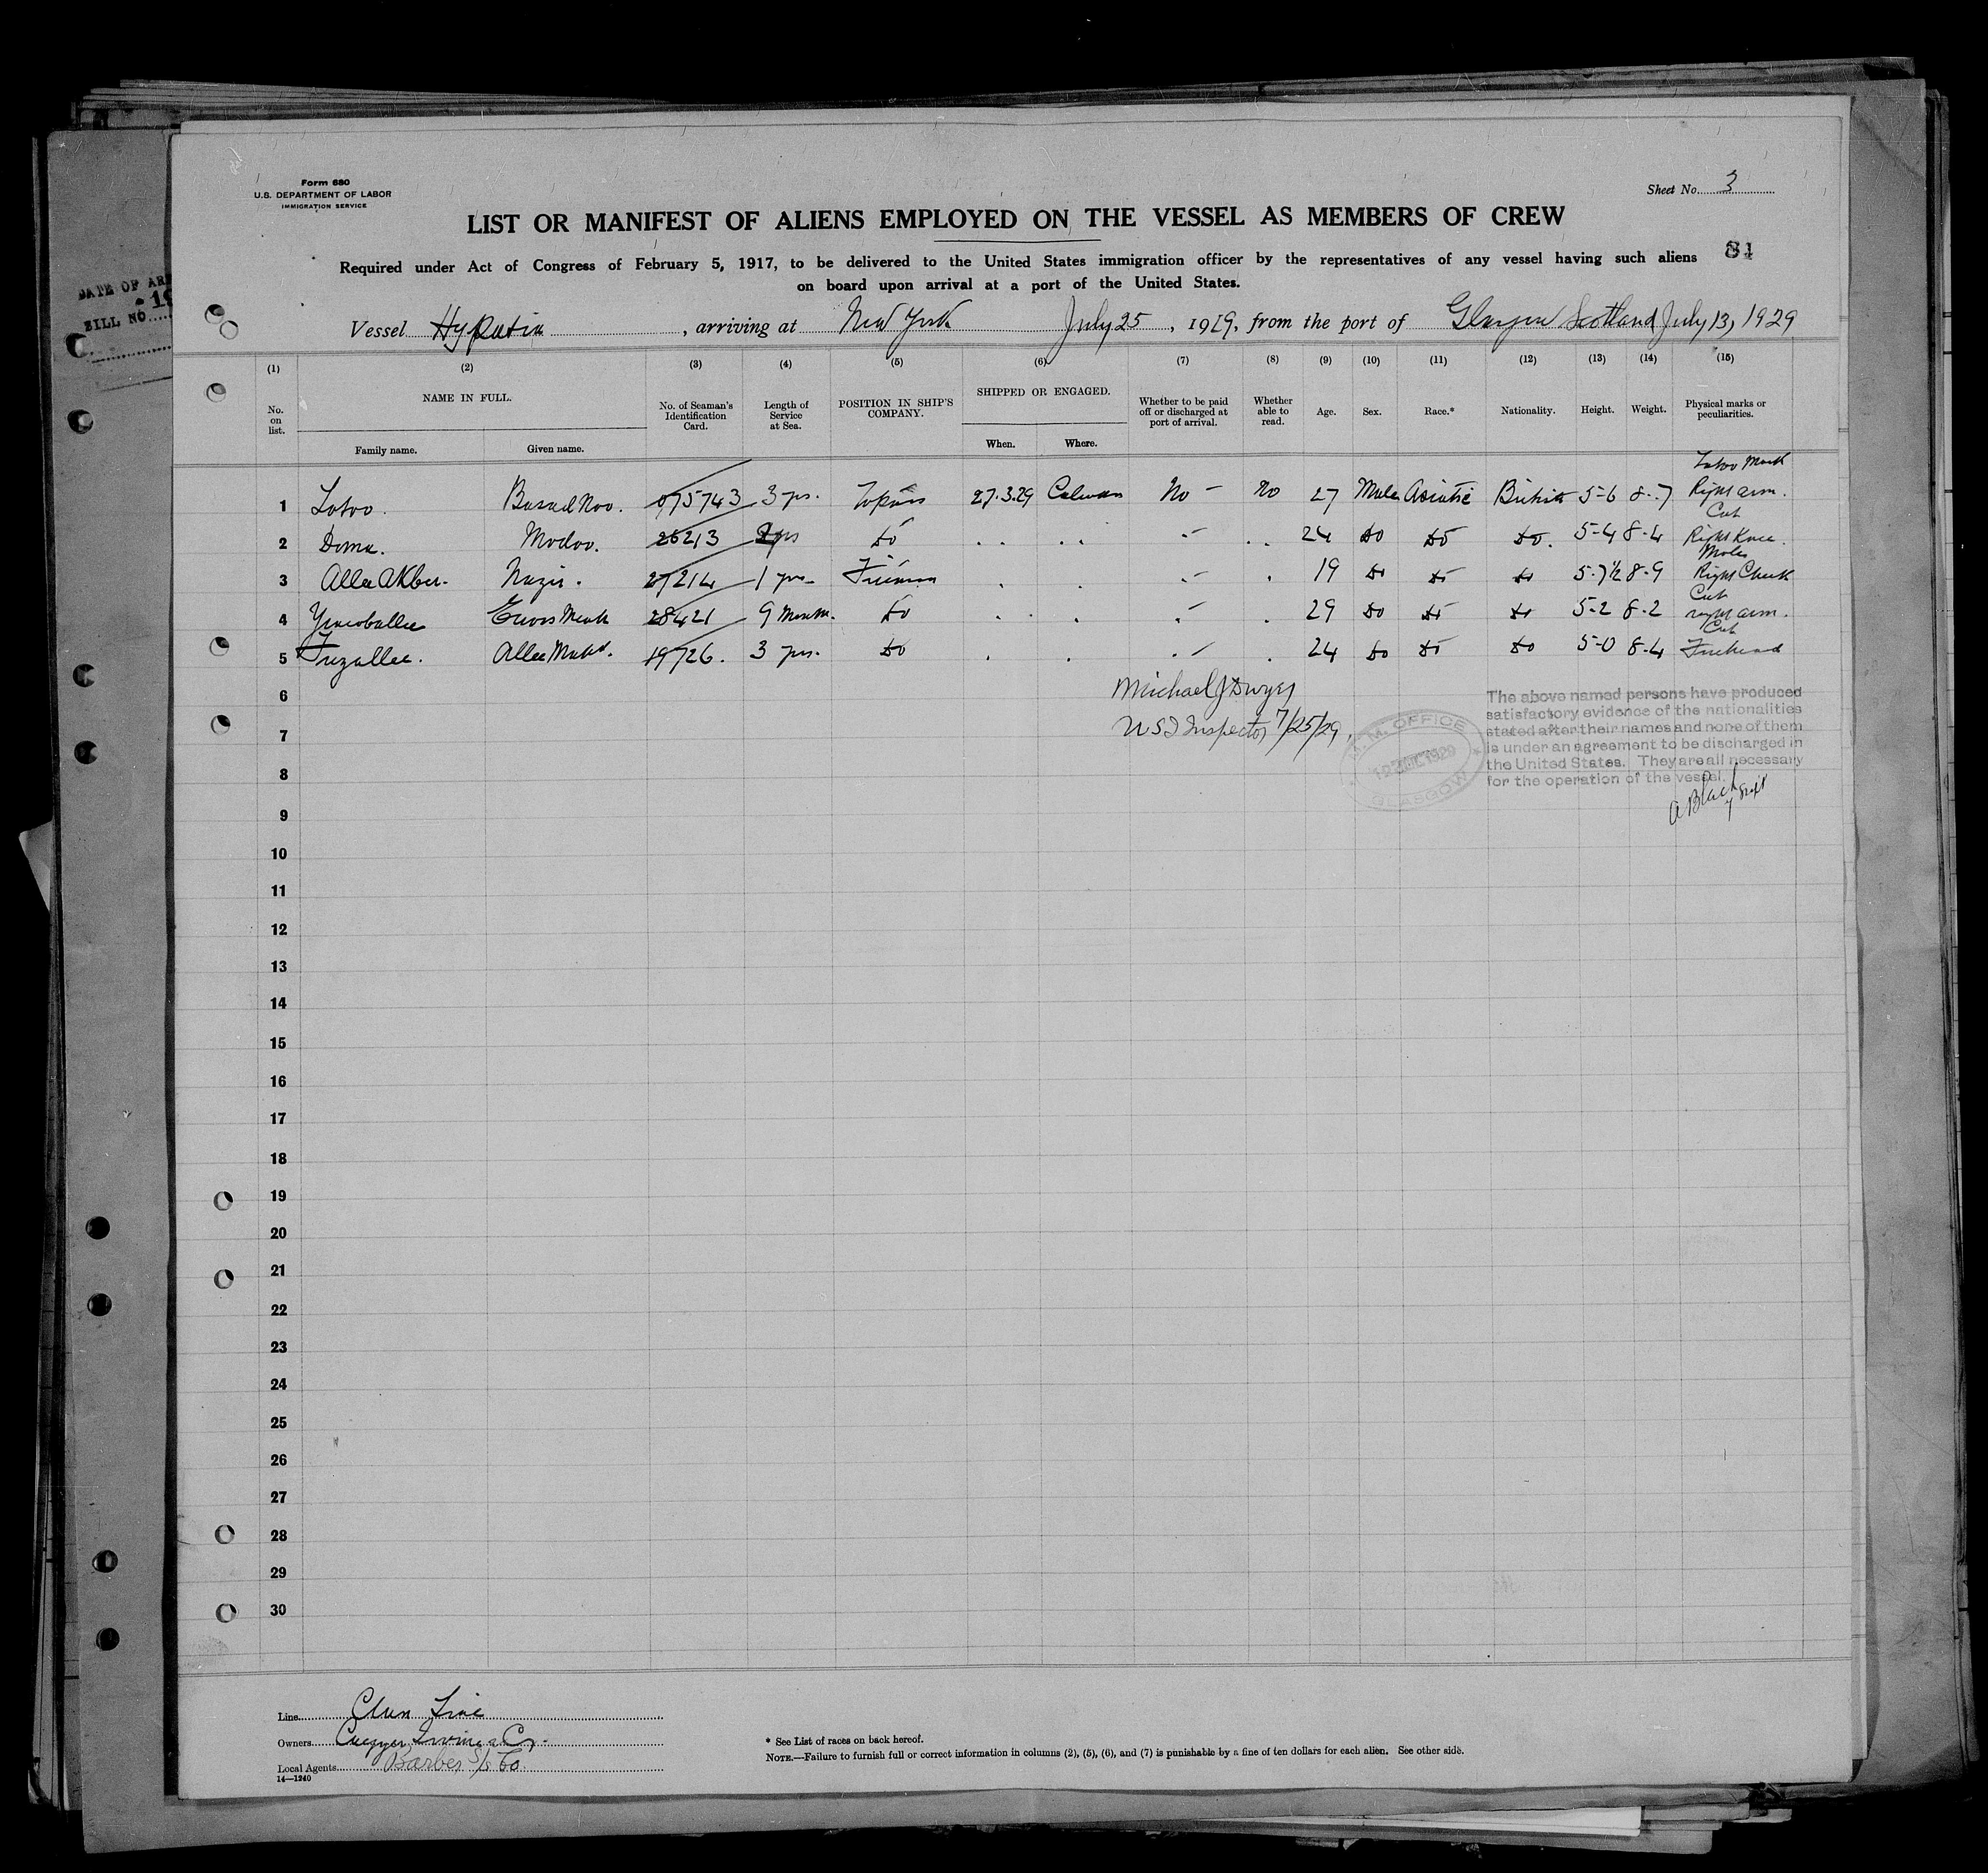 Form 680
U.S. DEPARTMENT OF LABOR
IMMIGRATION SERVICE
Sheet No. 3
LIST OR MANIFEST OF ALIENS EMPLOYED ON THE VESSEL AS MEMBERS OF CREW
81
Required under Act of Congress of February 5, 1917, to be delivered to the United States immigration officer by the representatives of any vessel having such aliens
on board upon arrival at a port of the United States.
DATE OF
BILL NO.
Vessel Hypatia, arriving at New York July 25, 1929, from the port of Glasgow Scotland July 13, 1929
(1) (2) (3) (4) (5) (6) (7) (8) (9) (10) (11) (12) (13) (14) (15)
No. on list. NAME IN FULL. Family name. Given name. No. of Seaman's Identification Card. Length of Service at Sea. POSITION IN SHIP'S COMPANY. SHIPPED OR ENGAGED. When. Where. Whether to be paid off or discharged at port of arrival. Whether able to read. Age. Sex. Race.* Nationality. Height. Weight. Physical marks or peculiarities.
1 075743 3 yrs. Topass 27.3.29 No - no 27 Male Asiatic British 5-6 8-7 Tatoo Mark Right arm.
2 Doma. Modoo. 26213 2 yrs do . . . . - . . 24 do do do. 5-4 8-4 Cut Right Knee.
3 Allee Akber. Nazir. 27214 1 yrs Fireman . . - . 19 do do do 5-7½ 8-9 Mole Right Cheek
4 28421 9 Months. do . . - . 29 do do do 5-2 8-2 Cut right arm.
5 Fuzallee. Allee Mahd. 19726. 3 yrs. do . . - . 24 do do do 5-0 8-4 Cut Forehead
6
7
8
9
10
11
12
13
14
15
16
17
18
19
20
21
22
23
24
25
26
27
28
29
30
Michael J Dwyer
U S I Inspector 7/25/29.
M. M. OFFICE
1929
GLASGOW
The above named persons have produced
satisfactory evidence of the nationalities
stated after their names and none of them
is under an agreement to be discharged in
the United States. They are all necessary
for the operation of the vessel.
A Black
Line Clan Line
Owners Cayzer Irvine & Co.
Local Agents Barber S/S Co.
14—1240
* See List of races on back hereof.
NOTE.—Failure to furnish full or correct information in columns (2), (5), (6), and (7) is punishable by a fine of ten dollars for each alien. See other side.